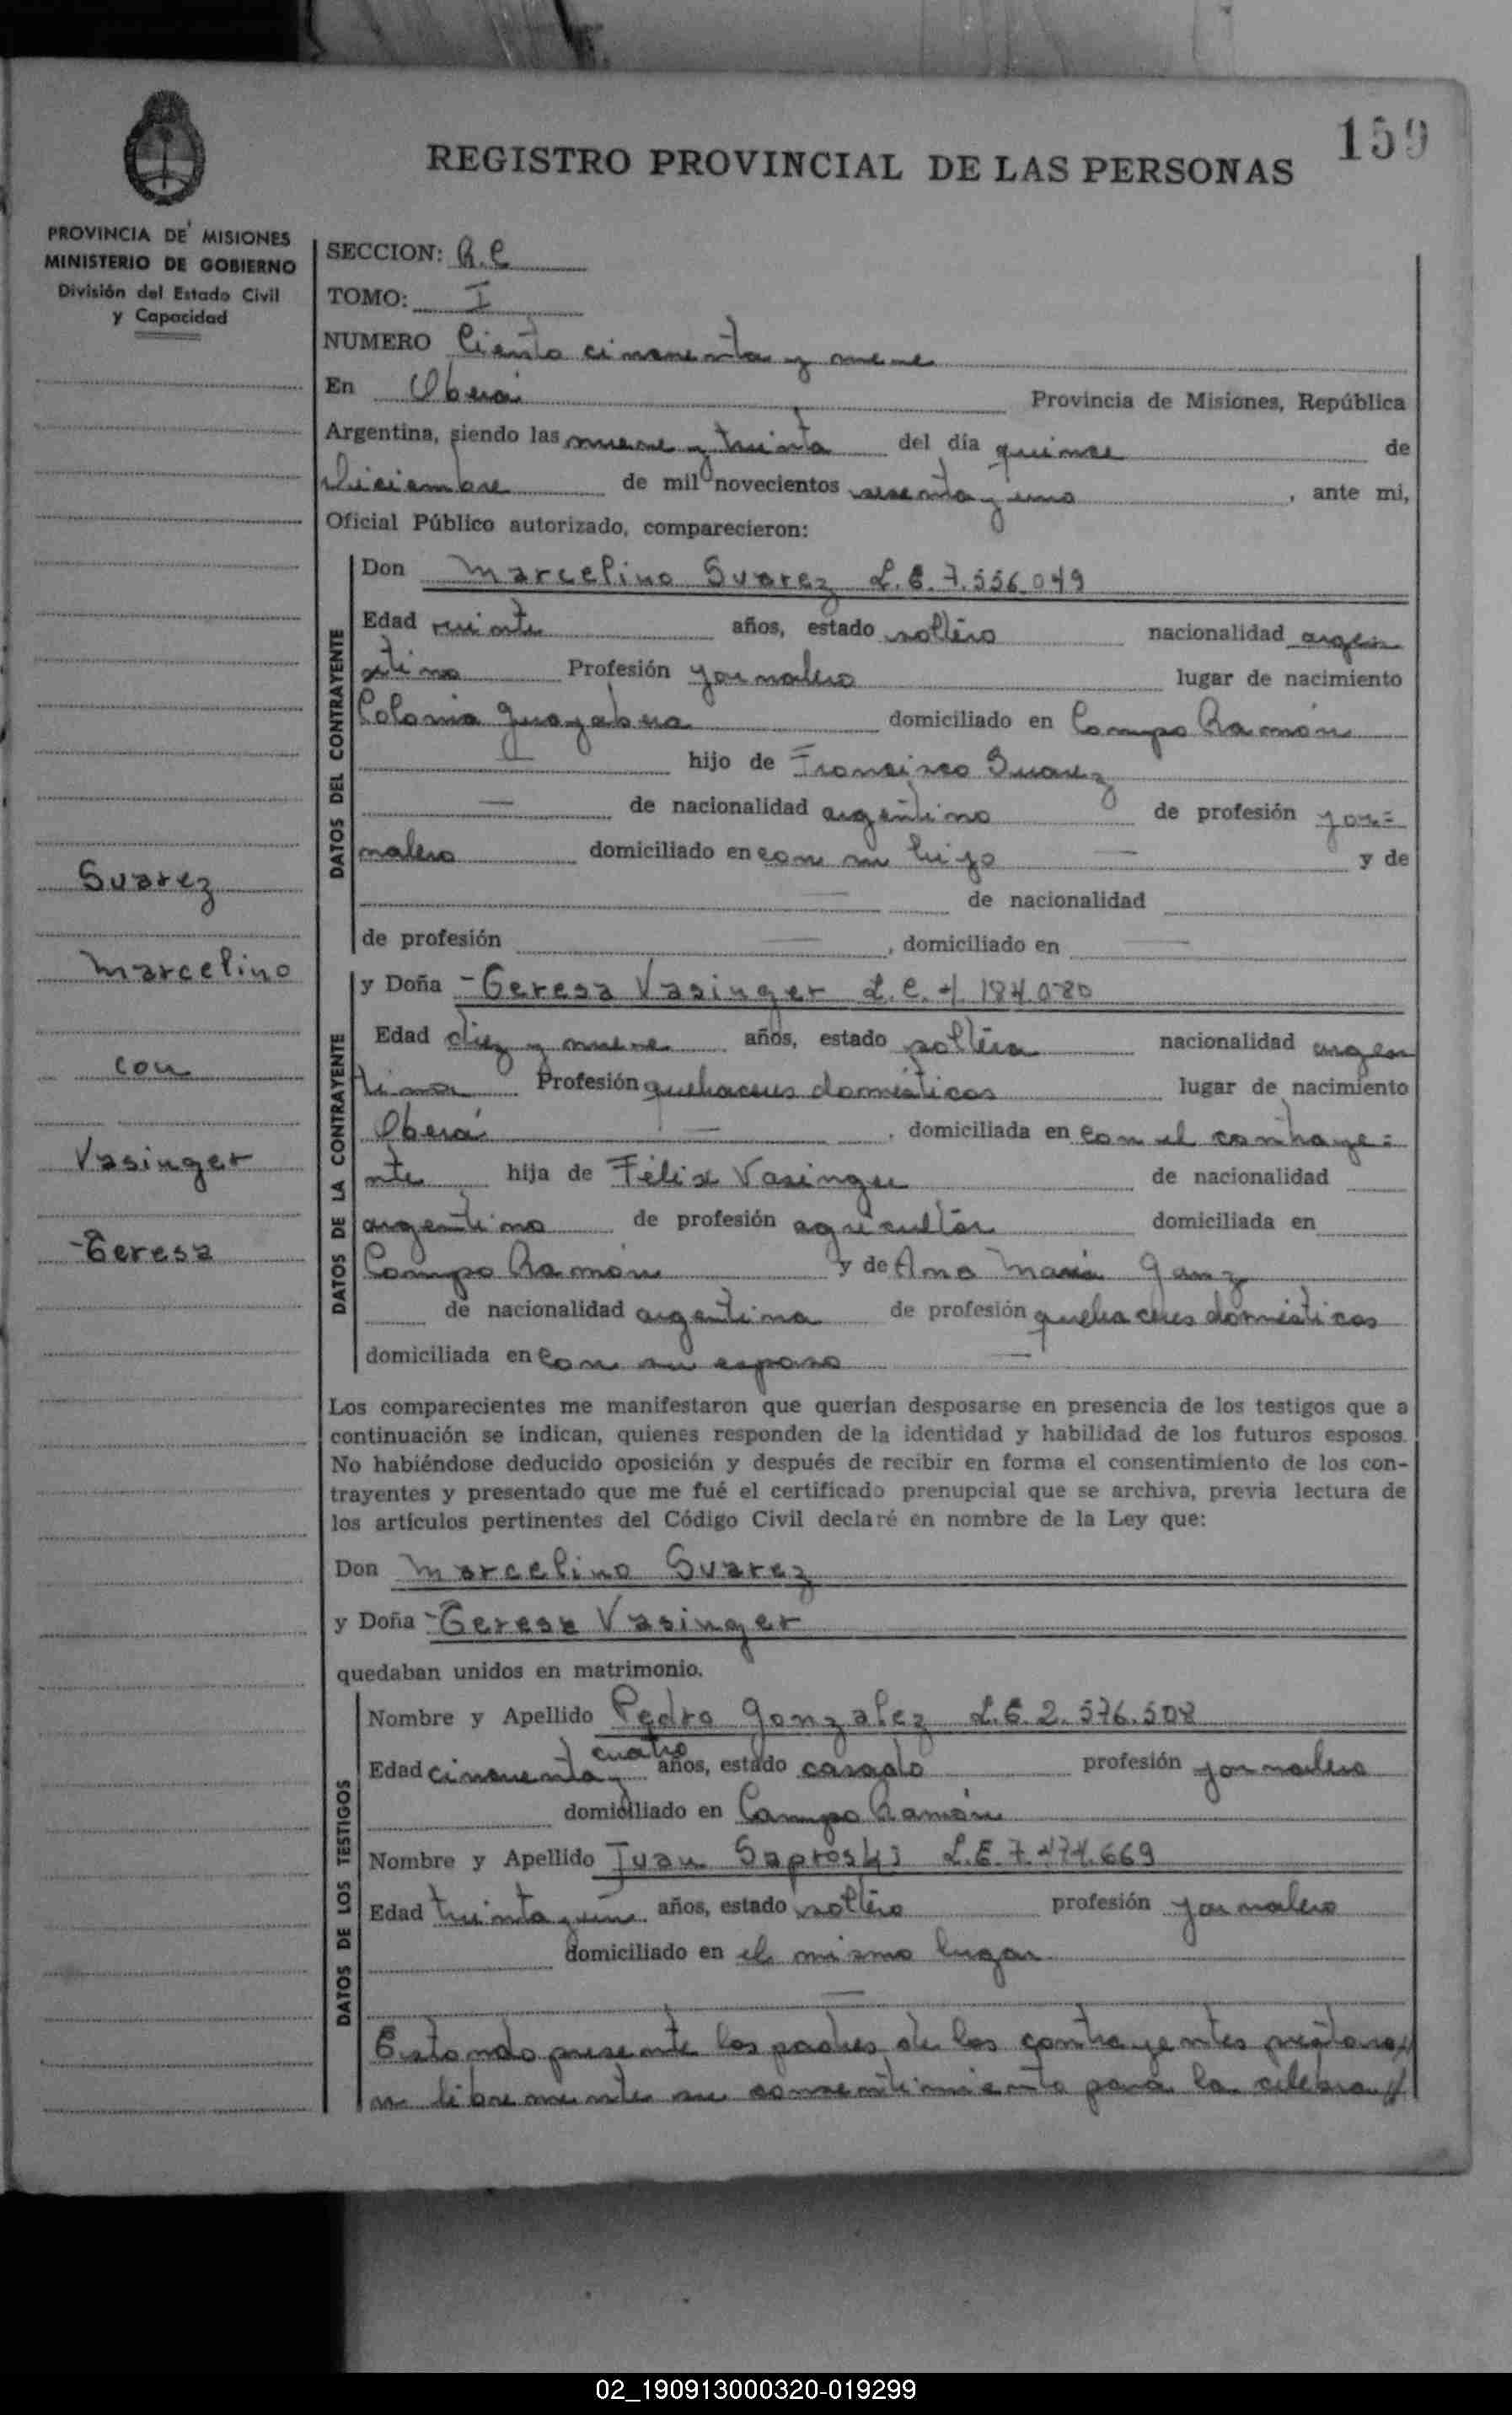 159
REGISTRO PROVINCIAL DE LAS PERSONAS
PROVINCIA DE MISIONES
MINISTERIO DE GOBIERNO
División del Estado Civil
y Capacidad
Suarez
Marcelino
con
Vasinger
Teresa
SECCION: R.C
TOMO: I
NUMERO Ciento cincuenta y nueve
En Oberá Provincia de Misiones, República
Argentina, siendo las nueve y treinta del día quince de
Diciembre de mil novecientos sesenta y uno, ante mi,
Oficial Público autorizado, comparecieron:
DATOS DEL CONTRAYENTE
Don Marcelino Suarez L.E. 7.556.049
Edad veinte años, estado soltero nacionalidad argen
tino Profesión jornalero lugar de nacimiento
Colonia Guayabera domiciliado en Campo Ramón
— hijo de Francisco Suarez
— de nacionalidad argentino de profesión jor=
nalero domiciliado en con su hijo — y de
— de nacionalidad
de profesión —, domiciliado en —
DATOS DE LA CONTRAYENTE
y Doña Teresa Vasinger L.C. 4.184.080
Edad diez y nueve años, estado soltera nacionalidad argen
tina Profesión quehaceres domésticos lugar de nacimiento
Oberá —, domiciliada en con el contraye=
nte hija de Félix Vasinger de nacionalidad
argentino de profesión agricultor domiciliada en
Campo Ramón y de Ana María Ganz
de nacionalidad argentina de profesión quehaceres domésticos
domiciliada en con su esposo —
Los comparecientes me manifestaron que querían desposarse en presencia de los testigos que a
continuación se indican, quienes responden de la identidad y habilidad de los futuros esposos.
No habiéndose deducido oposición y después de recibir en forma el consentimiento de los con-
trayentes y presentado que me fué el certificado prenupcial que se archiva, previa lectura de
los artículos pertinentes del Código Civil declaré en nombre de la Ley que:
Don Marcelino Suarez
y Doña Teresa Vasinger
quedaban unidos en matrimonio.
DATOS DE LOS TESTIGOS
Nombre y Apellido Pedro Gonzalez L.E. 2.576.508
Edad cincuenta y cuatro años, estado casado profesión jornalero
domiciliado en Campo Ramón
Nombre y Apellido Juan Saproski L.E. 7.474.669
Edad treinta y un años, estado soltero profesión jornalero
domiciliado en el mismo lugar
—
Estando presente los padres de los contrayentes prestaro//
n libremente su consentimiento para la celebra//
02_190913000320-019299